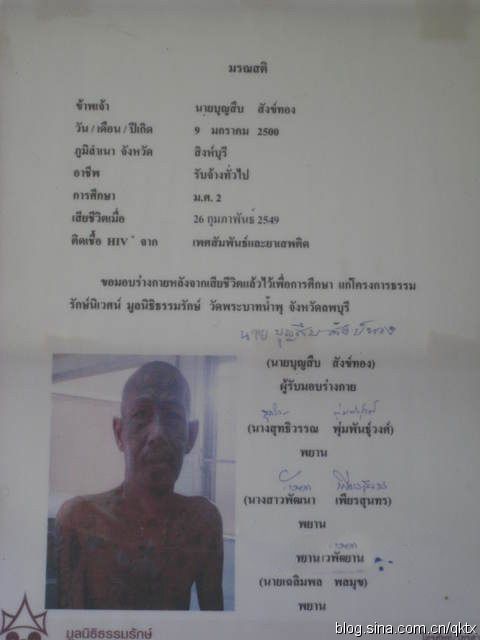 มรณสติ
ข้าพเจ้า นายบุญสืบ สังข์ทอง
วัน / เดือน / ปีเกิด 9 มกราคม 2500
ภูมิลำเนา จังหวัด สิงห์บุรี
อาชีพ รับจ้างทั่วไป
การศึกษา ม.ศ. 2
เสียชีวิตเมื่อ 26 กุมภาพันธ์ 2549
ติดเชื้อ HIV จาก เพศสัมพันธ์และยาเสพติด
ขอมอบร่างกายหลังจากเสียชีวิตแล้วไว้เพื่อการศึกษา แก่โครงการธรรม
รักษ์นิเวศน์ มูลนิธิธรรมรักษ์ วัดพระบาทน้ำพุ จังหวัดลพบุรี
นาย บุญสืบ สังข์ทอง
(นายบุญสืบ สังข์ทอง)
ผู้รับมอบร่างกาย
(นางสุทธิวรรณ พุ่มพันธุ์วงศ์)
พยาน
(นางสาวพัฒนา เพียรสุนทร)
พยาน
(นายเฉลิมพล พลมุข)
พยาน
มูลนิธิธรรมรักษ์
blog.sina.com.cn/qktx